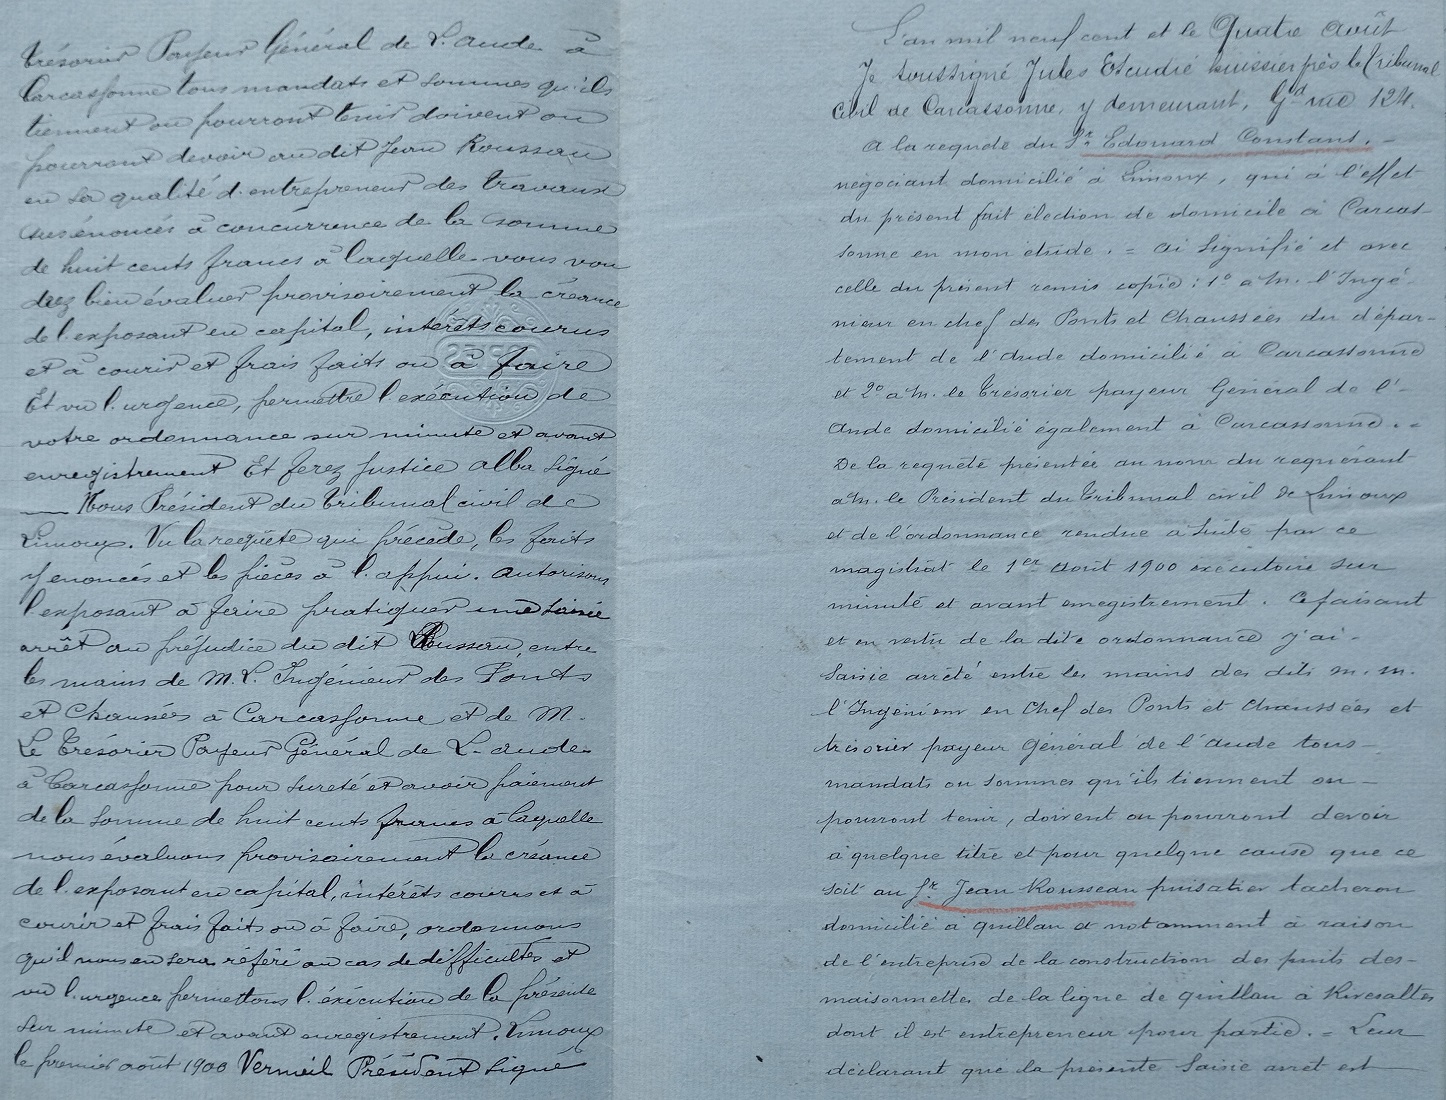 trésorier Payeur Général de l'aude à
Carcassonne tous mandats et sommes qu'ils
tiennent ou pourront tenir doivent ou
pourront devoir au dit Jean Rousseau
en sa qualité d'entrepreneur des travaux
susénoncés à concurrence de la somme
de huit cents francs à laquelle vous vou
drez bien évaluer provisoirement la créance
de l'exposant en capital, intérêts courus
et à courir et frais faits ou à faire
Et vu l'urgence, permettre l'exécution de
votre ordonnance sur minute et avant
enregistrement Et ferez Justice alba Signé
Nous Président du tribunal civil de
Limoux. Vu la requête qui précède, les faits
y énoncés et les pièces à l'appui. autorisons
l'exposant à faire pratiquer une saisie
arrêt au préjudice du dit Rousseau, entre
les mains de M. L'Ingénieur des Ponts
et Chaussées à Carcassonne et de M.
Le Trésorier Payeur Général de L'aude
à Carcassonne pour sureté et avoir paiement
de la somme de huit cents francs à laquelle
nous évaluons provisoirement la créance
de l'exposant en capital, intérêts courus et à
courir et frais faits ou à faire, ordonnons
qu'il nous en sera référé au cas de difficultés et
vu l'urgence permettons l'exécution de la présente
sur minute et avant enregistrement. Limoux
le premier août 1900 Vermeil Président Signé
L'an mil neuf cent et le Quatre août
Je soussigné Jules Escudié huissier près le Tribunal
Civil de Carcassonne, y demeurant, Gde rue 124.
A la requête du Sr Edouard Constans. -
négociant domicilié à Limoux, qui à l'effet
du présent fait élection de domicile à Carcas-
sonne en mon étude. = ai Signifié et avec
celle du présent remis copie : 1° a M. l'Ingé-
nieur en chef des Ponts et Chaussées du dépar-
tement de l'Aude domicilié à Carcassonne
et 2° a M. le Trésorier payeur Général de l'-
Aude domicilié également à Carcassonne. =
De la requête présentée au nom du requérant
a M. le Président du Tribunal civil de Limoux
et de l'ordonnance rendue a Suite par ce
magistrat le 1er août 1900 exécutoire sur
minute et avant enregistrement. Ce faisant
et en vertu de la dite ordonnance j'ai -
Saisie arrêté entre les mains des dits m. m.
l'Ingénieur en Chef des Ponts et Chaussées et
trésorier payeur Général de l'aude tous -
mandats ou sommes qu'ils tiennent ou -
pourront tenir, doivent ou pourront devoir
à quelque titre et pour quelque cause que ce
soit au Sr Jean Rousseau puisatier tacheron
domicilié à quillan et notamment à raison
de l'entreprise de la construction des puits des -
maisonnettes de la ligne de quillan à Rivesaltes
dont il est entrepreneur pour partie. = Leur
déclarant que la présente Saisie arrêt est